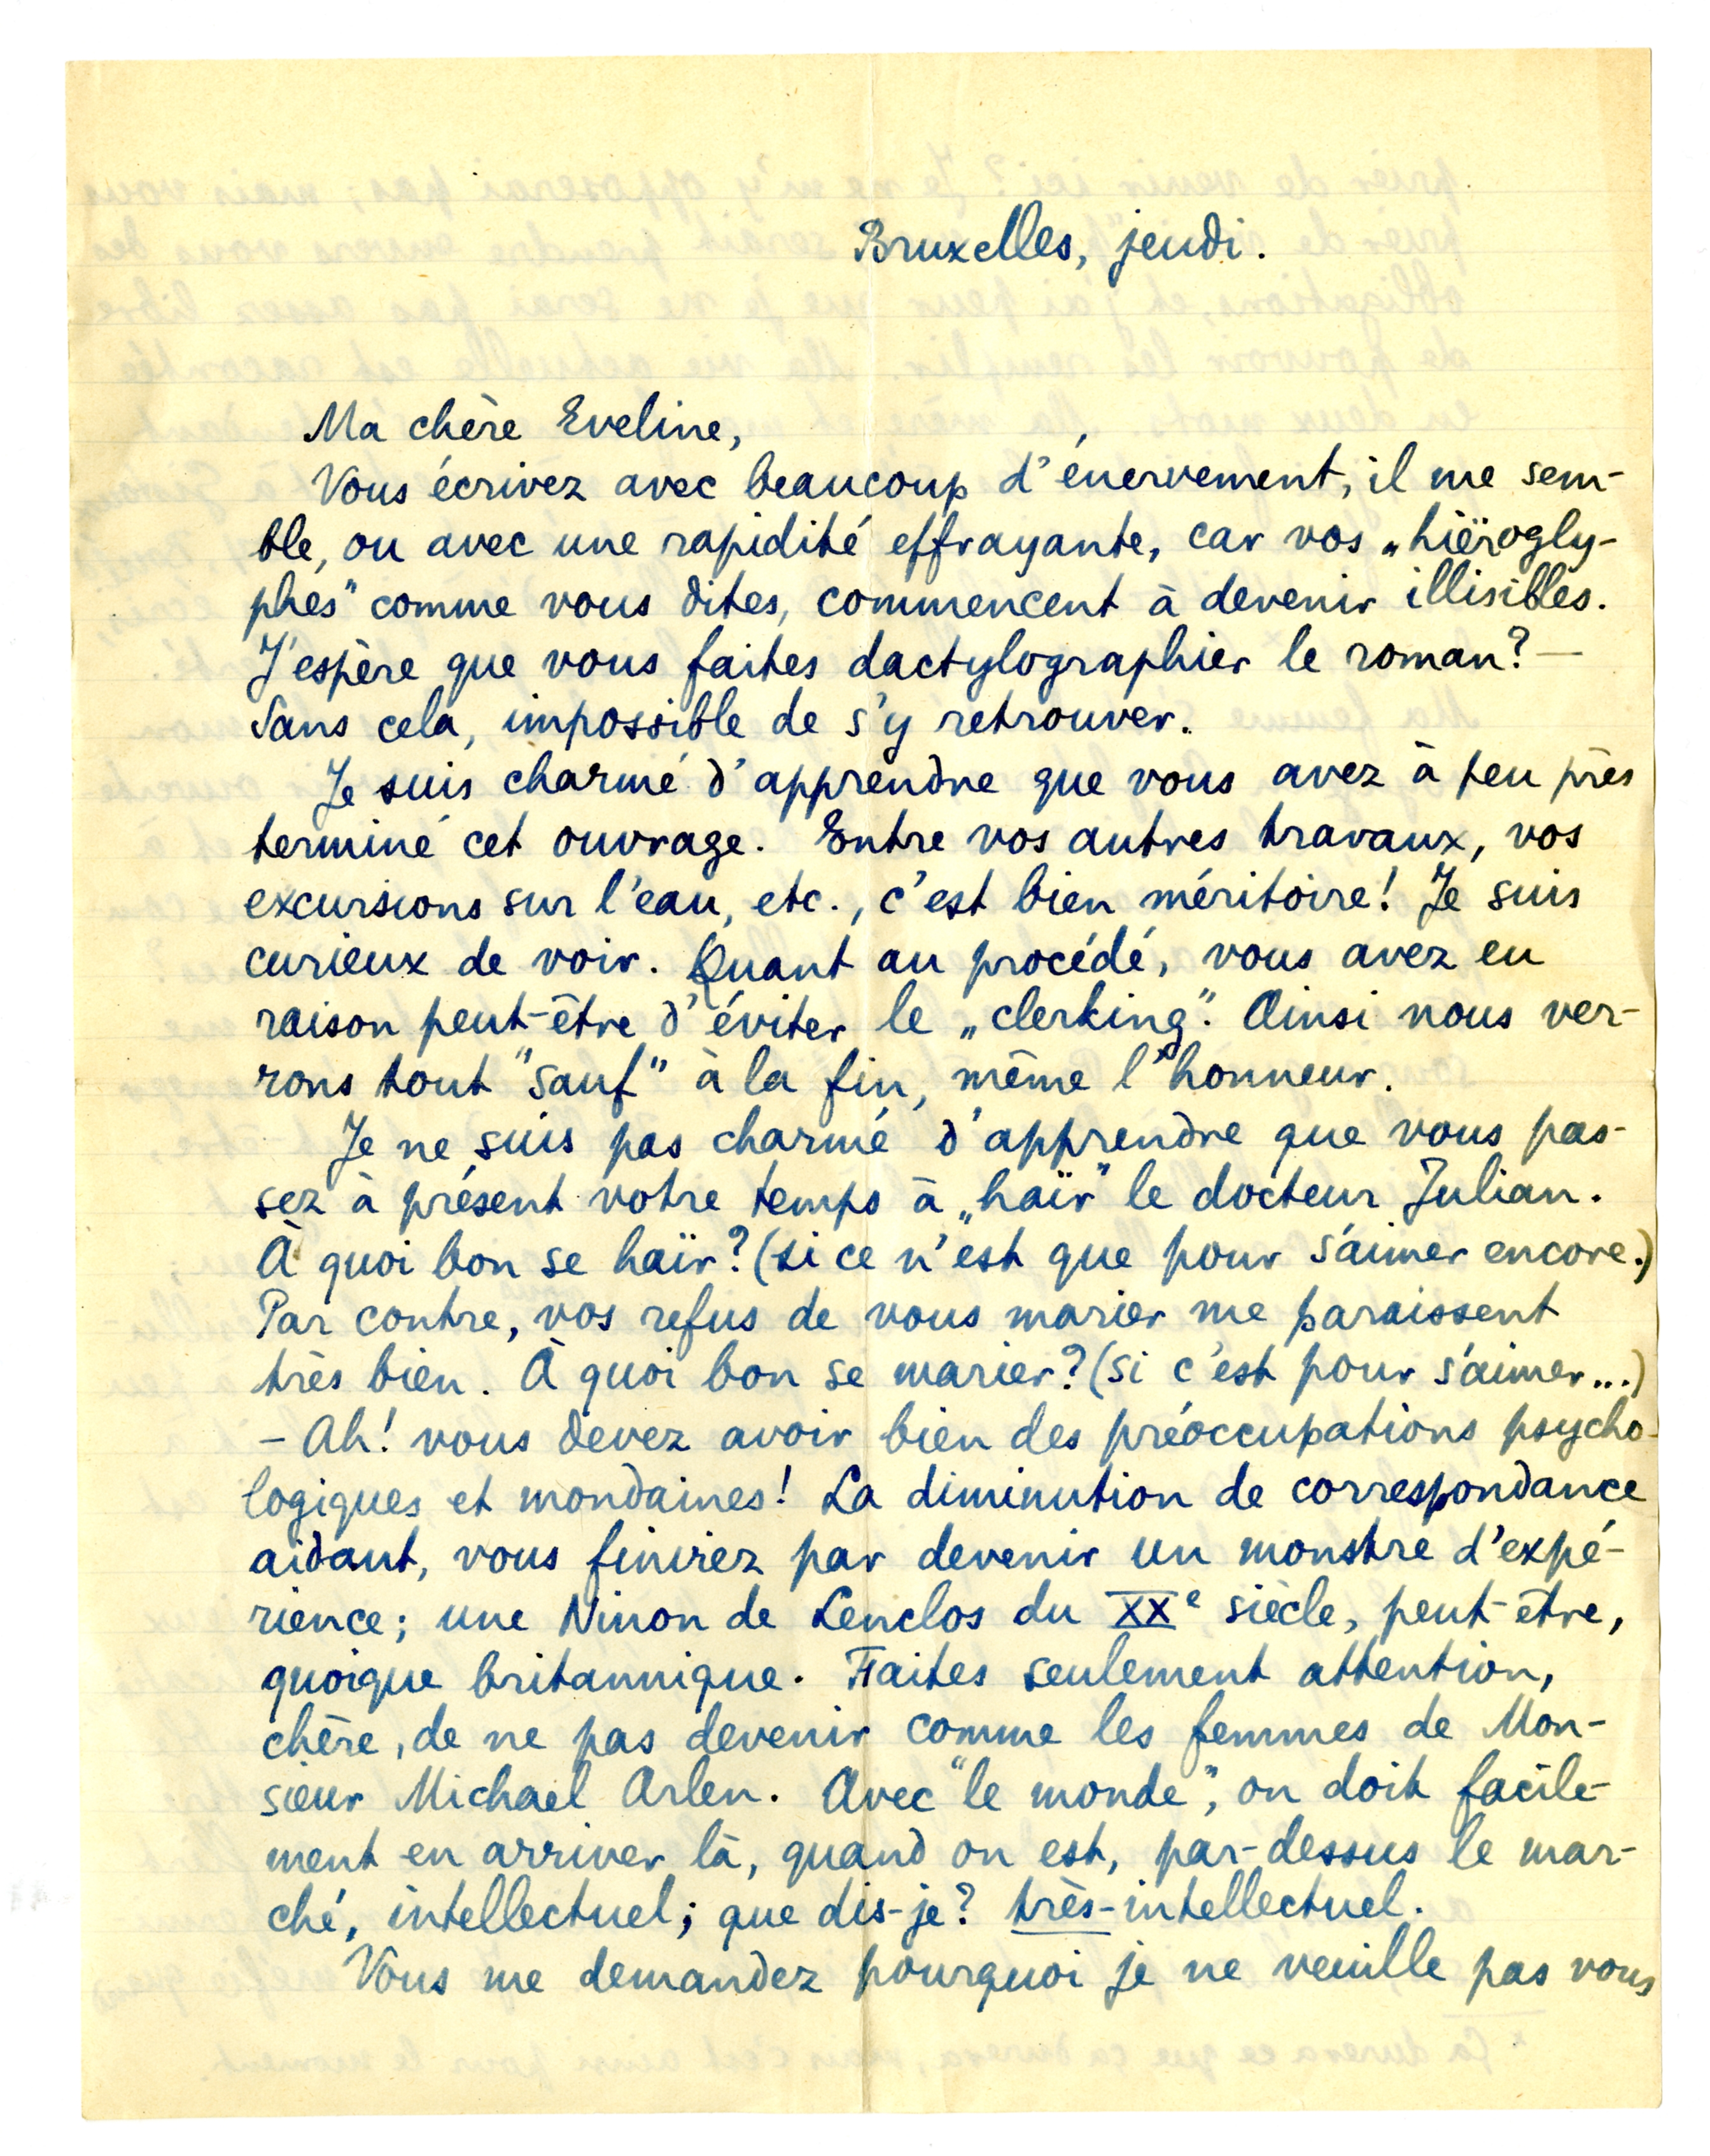 Bruxelles, jeudi.
Ma chère Eveline,
Vous écrivez avec beaucoup d'énervement, il me sem-
ble, ou avec une rapidité effrayante, car vos „hiërogly-
phes" comme vous dites, commencent à devenir illisibles.
J'espère que vous faites dactylographier le roman? —
Sans cela, impossible de s'y retrouver.
Je suis charmé d'apprendre que vous avez à peu près
terminé cet ouvrage. Entre vos autres travaux, vos
excursions sur l'eau, etc., c'est bien méritoire! Je suis
curieux de voir. Quant au procédé, vous avez eu
raison peut-être d'éviter le „clerking". Ainsi nous ver-
rons tout "sauf" à la fin, même l'honneur.
Je ne suis pas charmé d'apprendre que vous pas-
sez à présent votre temps à „haïr" le docteur Julian.
À quoi bon se haïr? (si ce n'est que pour s'aimer encore.)
Par contre, vos refus de vous marier me paraissent
très bien. À quoi bon se marier? (si c'est pour s'aimer...)
– Ah! vous devez avoir bien des préoccupations psycho-
logiques et mondaines! La diminution de correspondance
aidant, vous finirez par devenir un monstre d'expé-
rience; une Ninon de Lenclos du XXe siècle, peut-être,
quoique britannique. Faites seulement attention,
chère, de ne pas devenir comme les femmes de Mon-
sieur Michael Arlen. Avec "le monde", on doit facile-
ment en arriver là, quand on est, par-dessus le mar-
ché, intellectuel; que dis-je? très-intellectuel.
Vous me demandez pourquoi je ne veuille pas vous